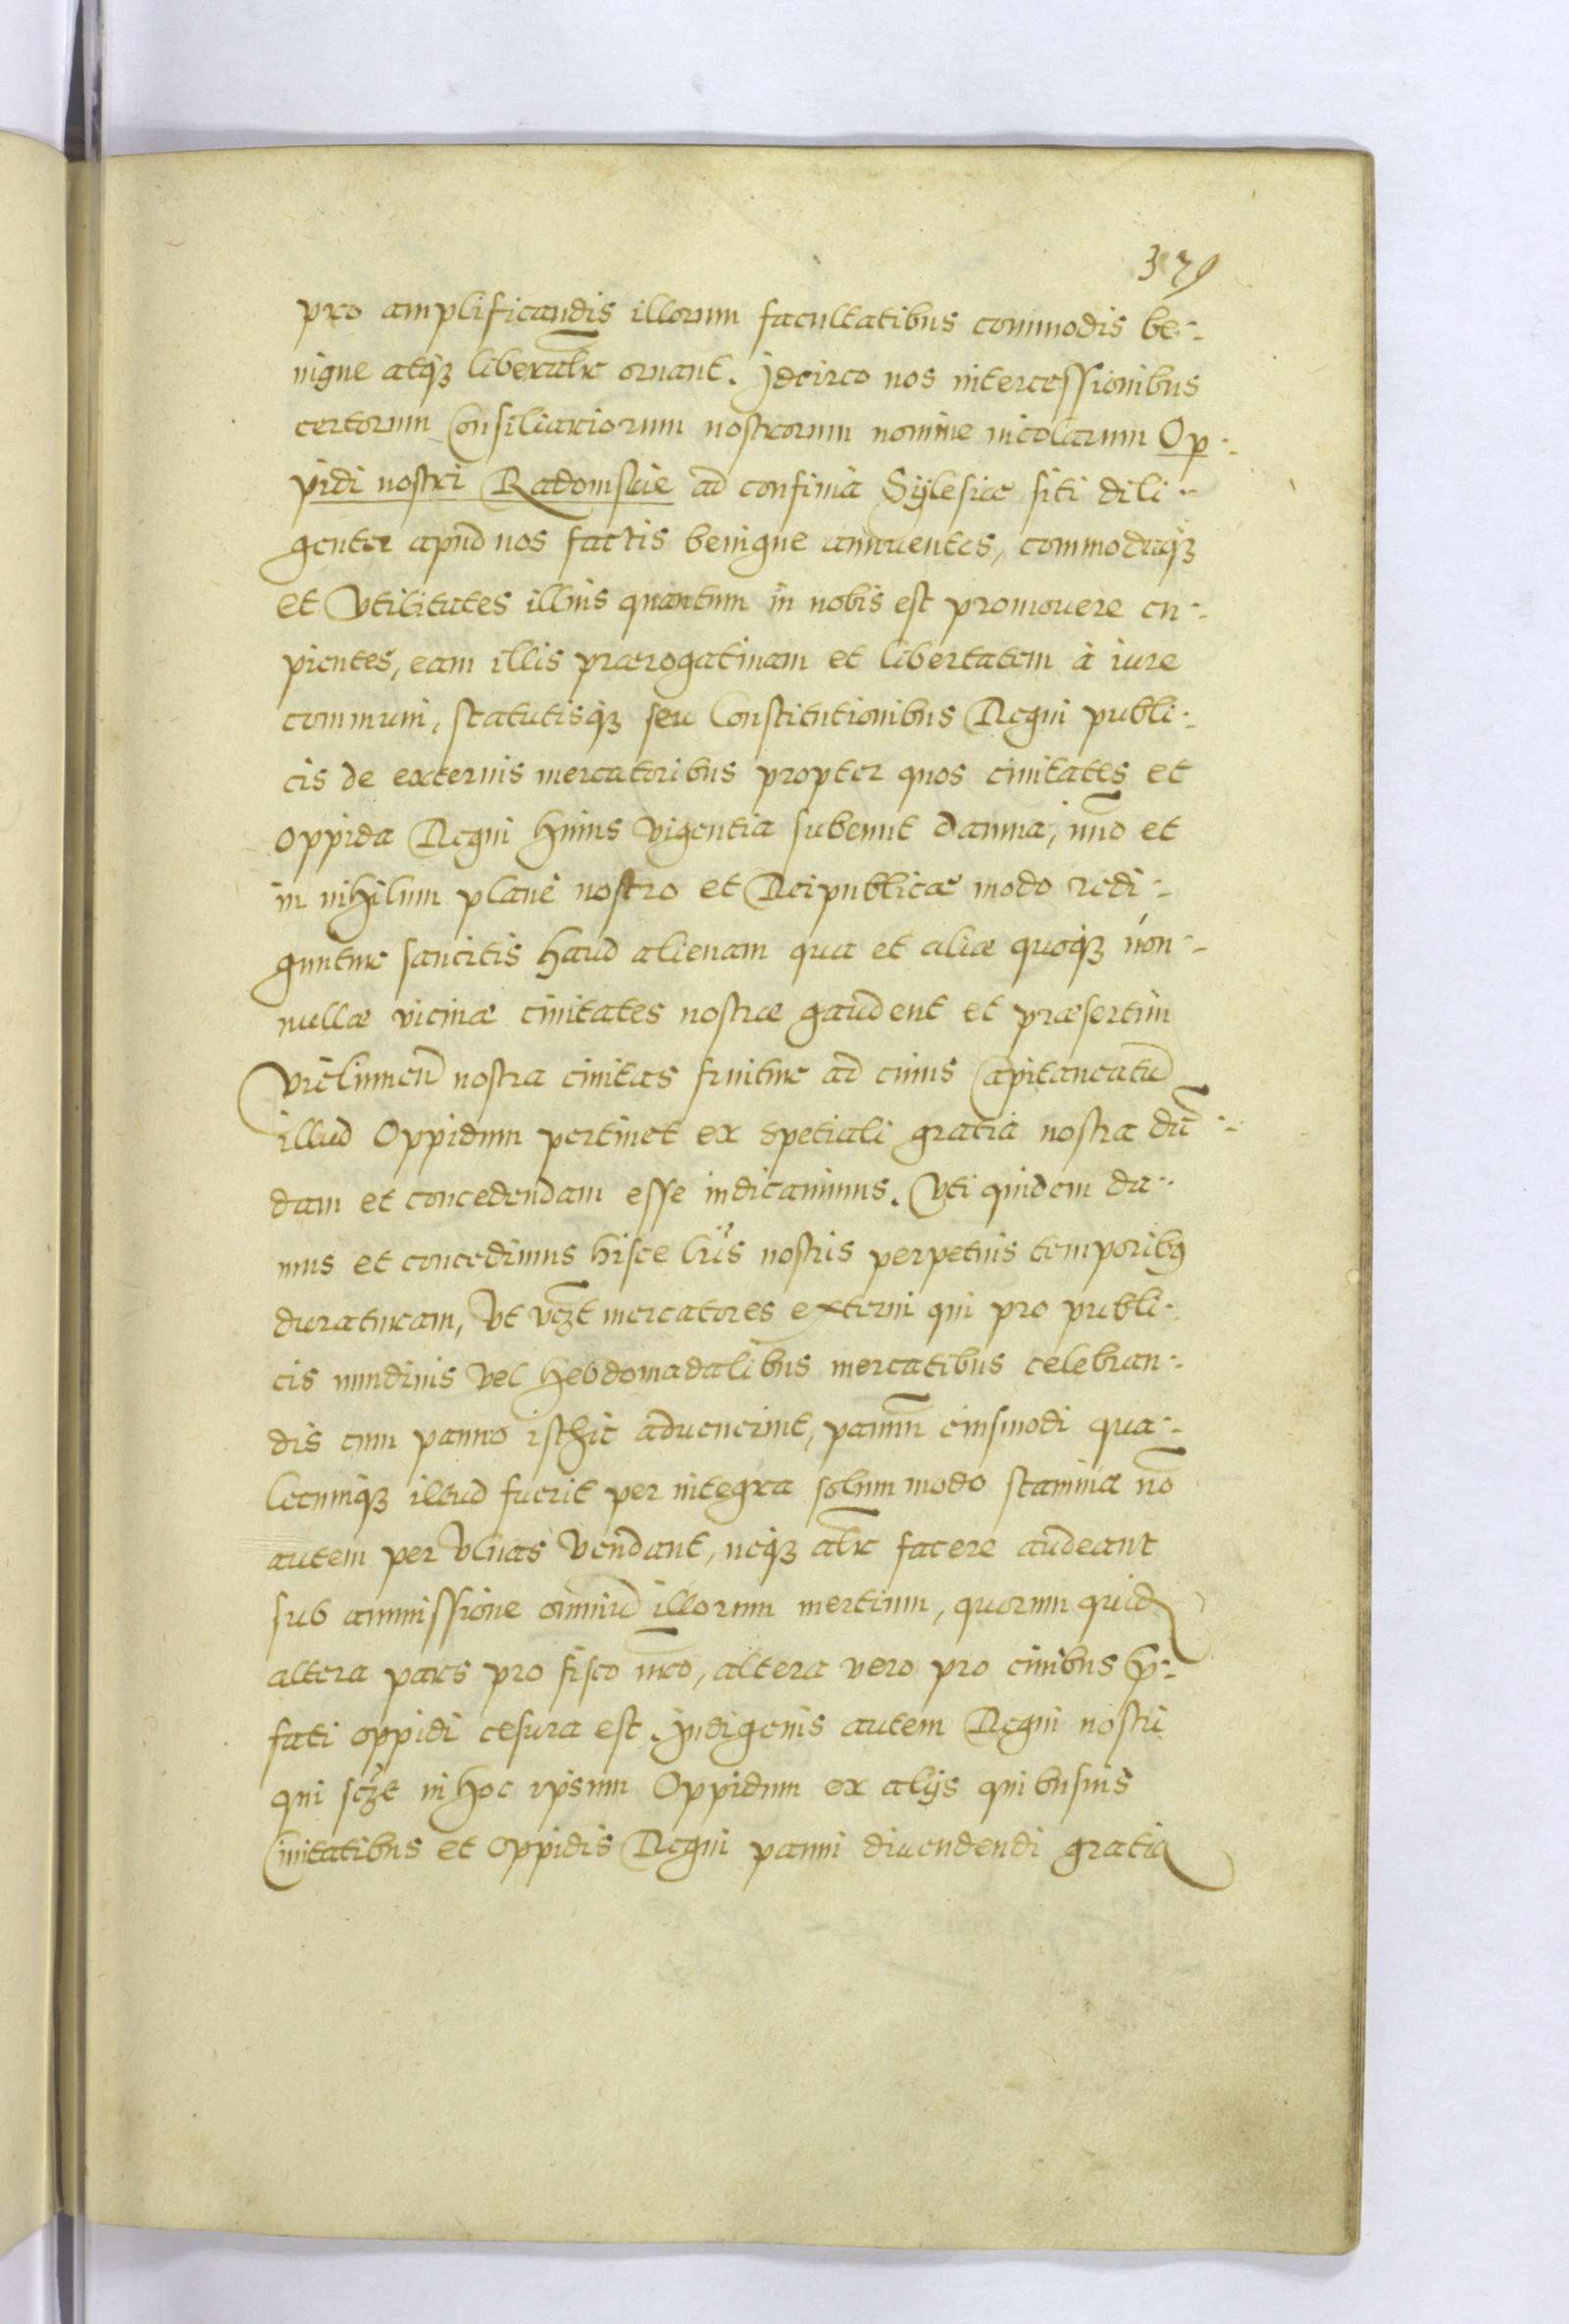 379
pro amplificandis illorum facultatibus commodis be-
nigne atq3 liberalr ornant. Jdcirco nos intercessionibus
certorum Consiliariorum nostrorum nomine incolarum Op-
pidi nostri Radomscie ad confinia Sÿlesiæ siti dili-
genter apud nos factis benigne annuentes, commodaq3
et Vtilitates illius quantum in nobis est promouere cu-
pientes, eam illis prærogatiuam et libertatem à iure
communi, statutisq3 seu Constitutionibus Regni publi-
cis de externis mercatoribus propter quos ciuitates et
oppida Regni huius vigentia subeunt damna, imo et
in nihilum planè nostro et Reipublicæ modo redi-
guntur sancitis haud alienam qua et aliæ quoq3 non-
nullæ vicinæ ciuitates nostræ gaudent et præsertim
Vielunien nostra ciuitas fruitur ad cuius Capitaneatu
illud Oppidum pertinet ex spetiali gratia nostra dn-
dam et concedendam esse indicauimus. Vti quidem da-
mus et concedimus hisce lris nostris perpetuis temporib9
duraturam, Vt vczt mercatores externi qui pro publi-
cis nundinis vel hebdomadalibus mercatibus celebran-
dis cum panno isthic aduenerint, pannu eiusmodi qua-
lecunq3 illud fuerit per integra solummodo stamina no
autem per Vlnas vendant, neq3 alr facere audeant
sub ammissione omniu illorum mertium, quorum quid
altera pars pro fisco nro, altera vero pro ciuibus p-
fati oppidi cesura est. Indigenis autem Regni nostri
qui sczt in hoc ipsum Oppidum ex alijs quibusuis
Ciuitatibus et oppidis Regni panni diuendendi gratia